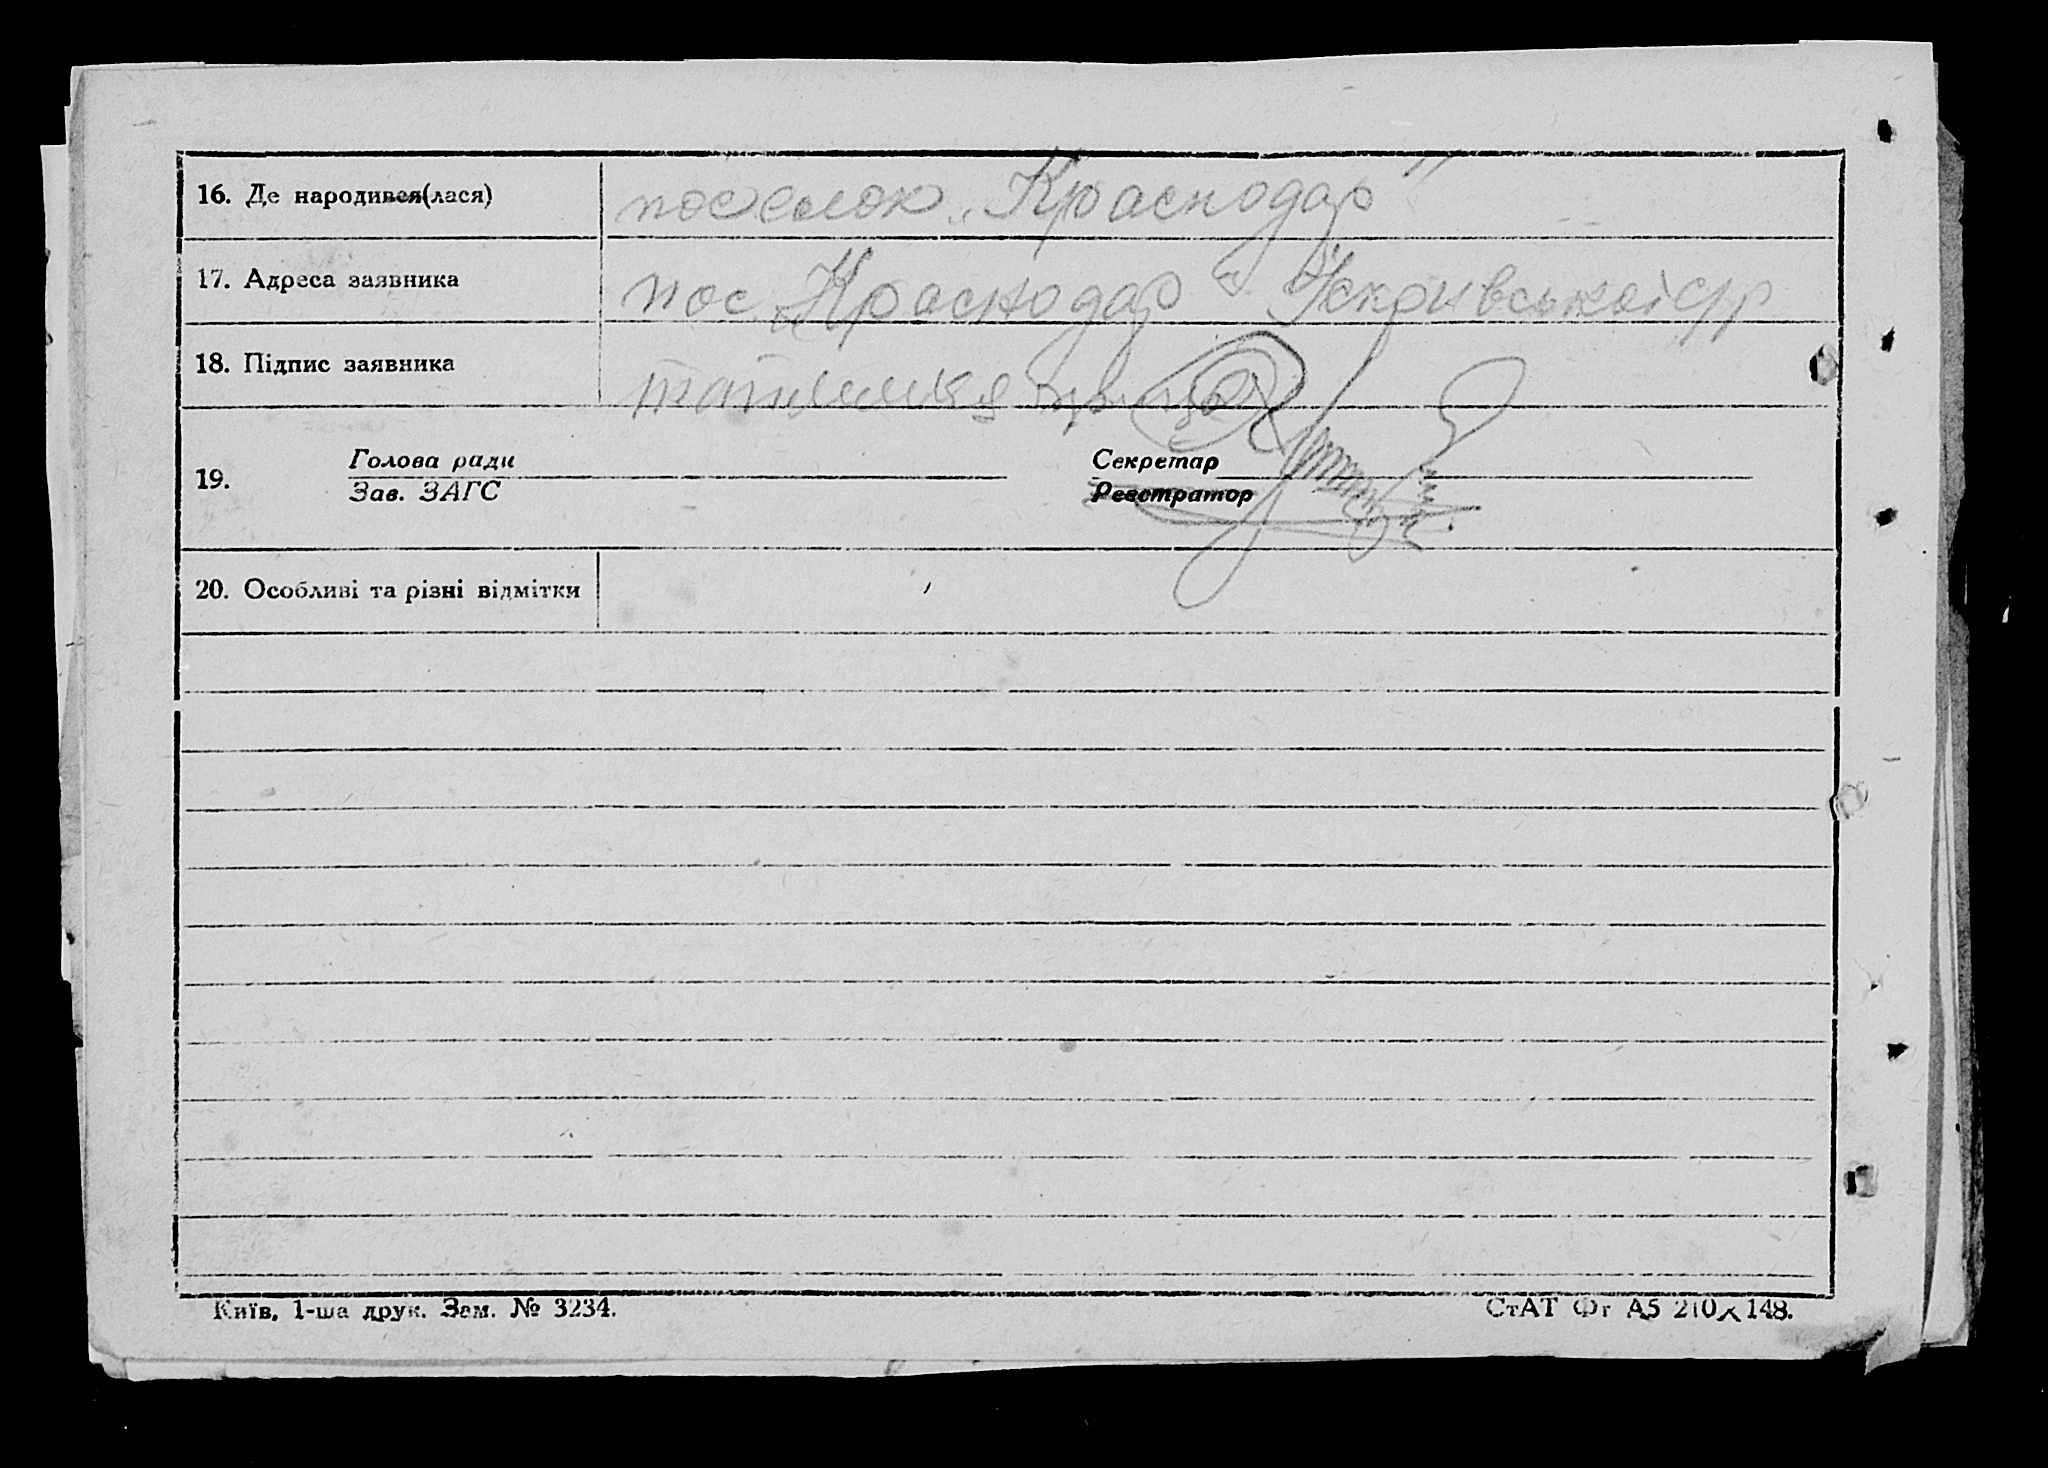 16. Де народився(лася) поселок „Краснодар"
17. Адреса заявника пос. „Краснодар"
18. Підпис заявника
19. Голова ради Секретар
Зав. ЗАГС Реєстратор
20. Особливі та різні відмітки
Київ, 1-ша друк. Зам. № 3234. СтАТ Фг А5 210×148.